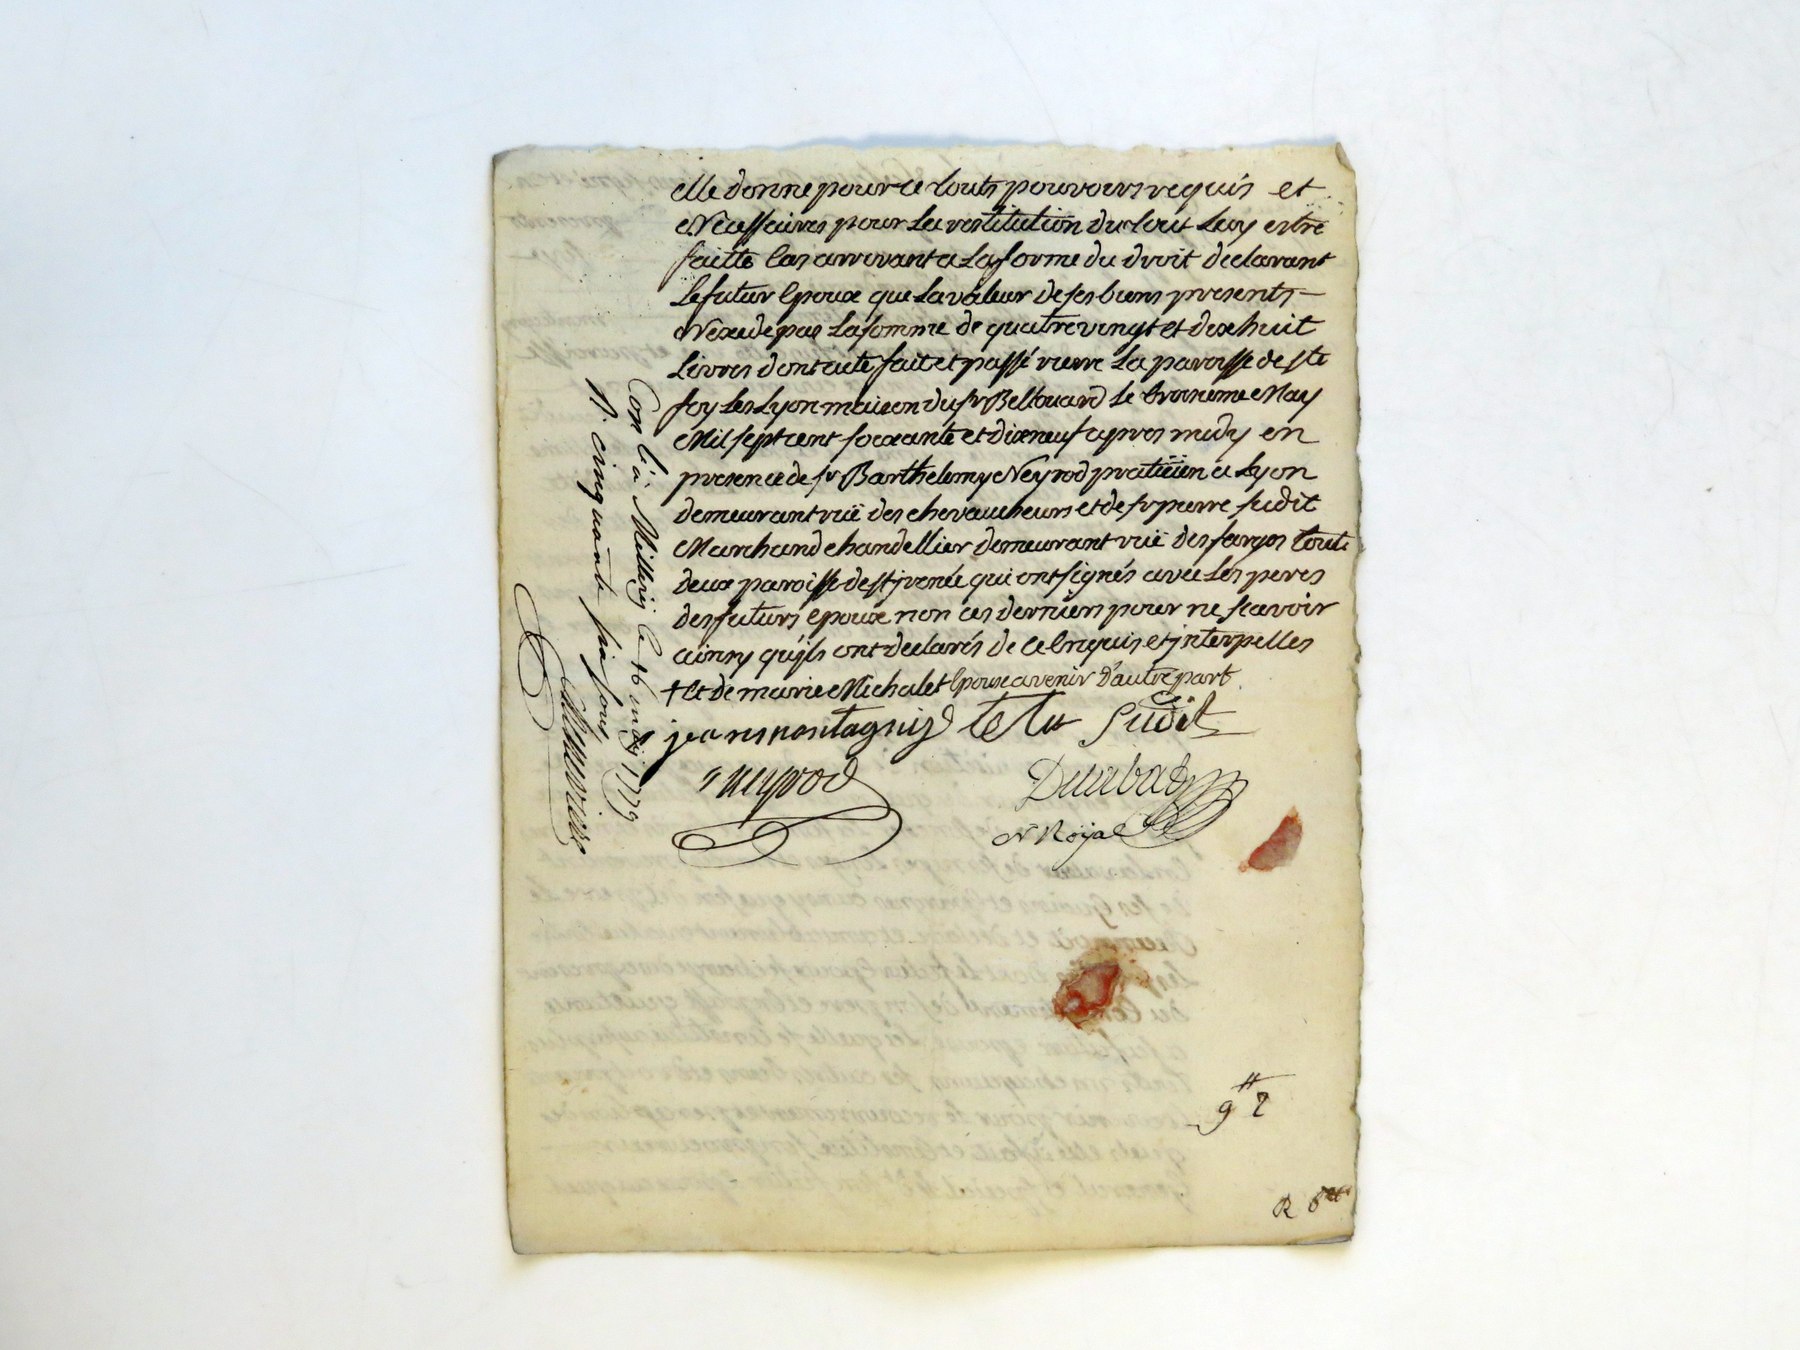 elle donne pour ce touts pouvoirs requis et
Necessaires pour La restitution du tout Luy estre
faitte Cas arrivant a La forme du droit declarant
Le futur Epoux que La valeur de ses biens presents
N'exede pas La somme de quatre vingt et dix huit
Livres dont acte fait et passé riere La paroisse de ste
foy Les Lyon maison du sr Bellouard Le troisieme May
Mil sept cent soixante et dix neuf apres midy en
presence de sr Barthelemy Neyrod praticien a Lyon
demeurant ruë des chevaucheurs et de sr pierre Judit
Marchand chandellier demeurant ruë des farges touts
deux paroisse de st jrenée qui ont signés avec Les peres
des futurs epoux non ces derniers pour ne scavoir
ainsy qu'ils ont declarés de ce Enquis et jnterpelles
+ Et de marie Michalet Epouse a venir d'autre part
jean montagnié Judit
neyrod
N Royal
Con. lé a Millery le 16 may 1779
R. cinquante six sous
9# 2
R 6